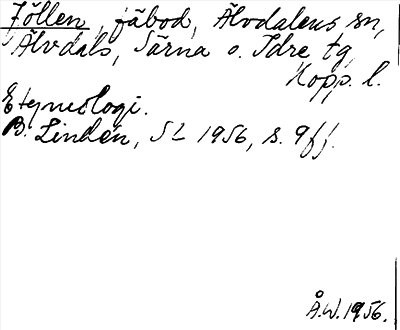 Jöllen, fäbod, Älvdalens sn,
Älvdals, Särna o. Idre tg
Kopp. l.
Etymologi.
B. Lindén, SL 1956, s. 9 ff.
Å.W. 1956.